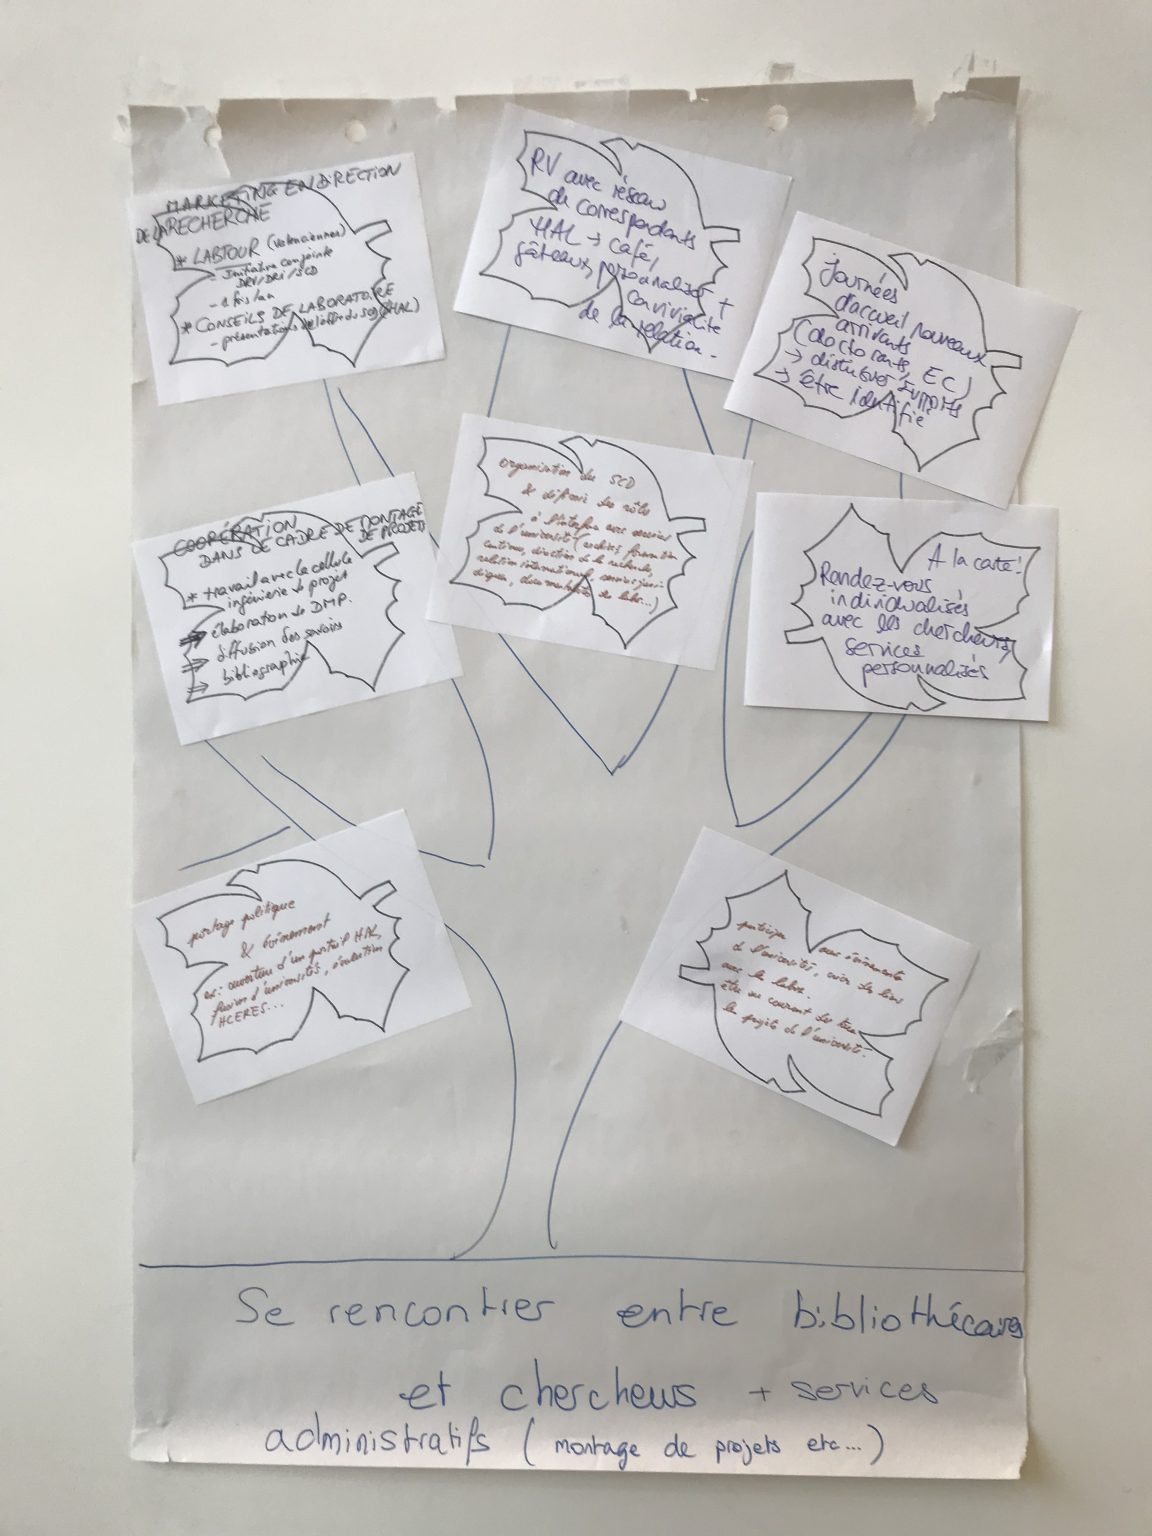 MARKETING EN DIRECTION
DE LA RECHERCHE
* LABTOUR (Valenciennes)
- Initiative conjointe
DRV/DRI/SCD
- 1 fois/an
* CONSEILS DE LABORATOIRE
- présentations de l'offre du SCD (HAL)
RV avec réseau
de correspondants
HAL → café,
gâteaux, personnaliser +
convivialité
de la relation.
Journées
d'accueil nouveaux
arrivants
(doctorants, EC)
→ distribuer supports
→ être identifié
COOPÉRATION
DANS LE CADRE DE MONTAGE
DE PROJETS
* travail avec la cellule
ingénierie de projet
⇒ élaboration de DMP.
⇒ diffusion des savoirs
⇒ bibliographie
organisation du SCD
& définir des rôles
à l'interface avec services
de l'université (archives, formation
continue, direction de la recherche,
relation internationale, services juri-
diques, documentaliste de labo...)
A la carte!
Rendez-vous
individualisés
avec les chercheurs,
services
personnalisés
portage politique
& événement
ex: ouverture d'un portail HAL,
fusion d'universités, évaluation
HCERES...
participer aux événements
de l'université, créer des liens
avec les labos.
être au courant des
les projets de l'université.
Se rencontrer entre bibliothécaires
et chercheurs + services
administratifs (montage de projets etc...)